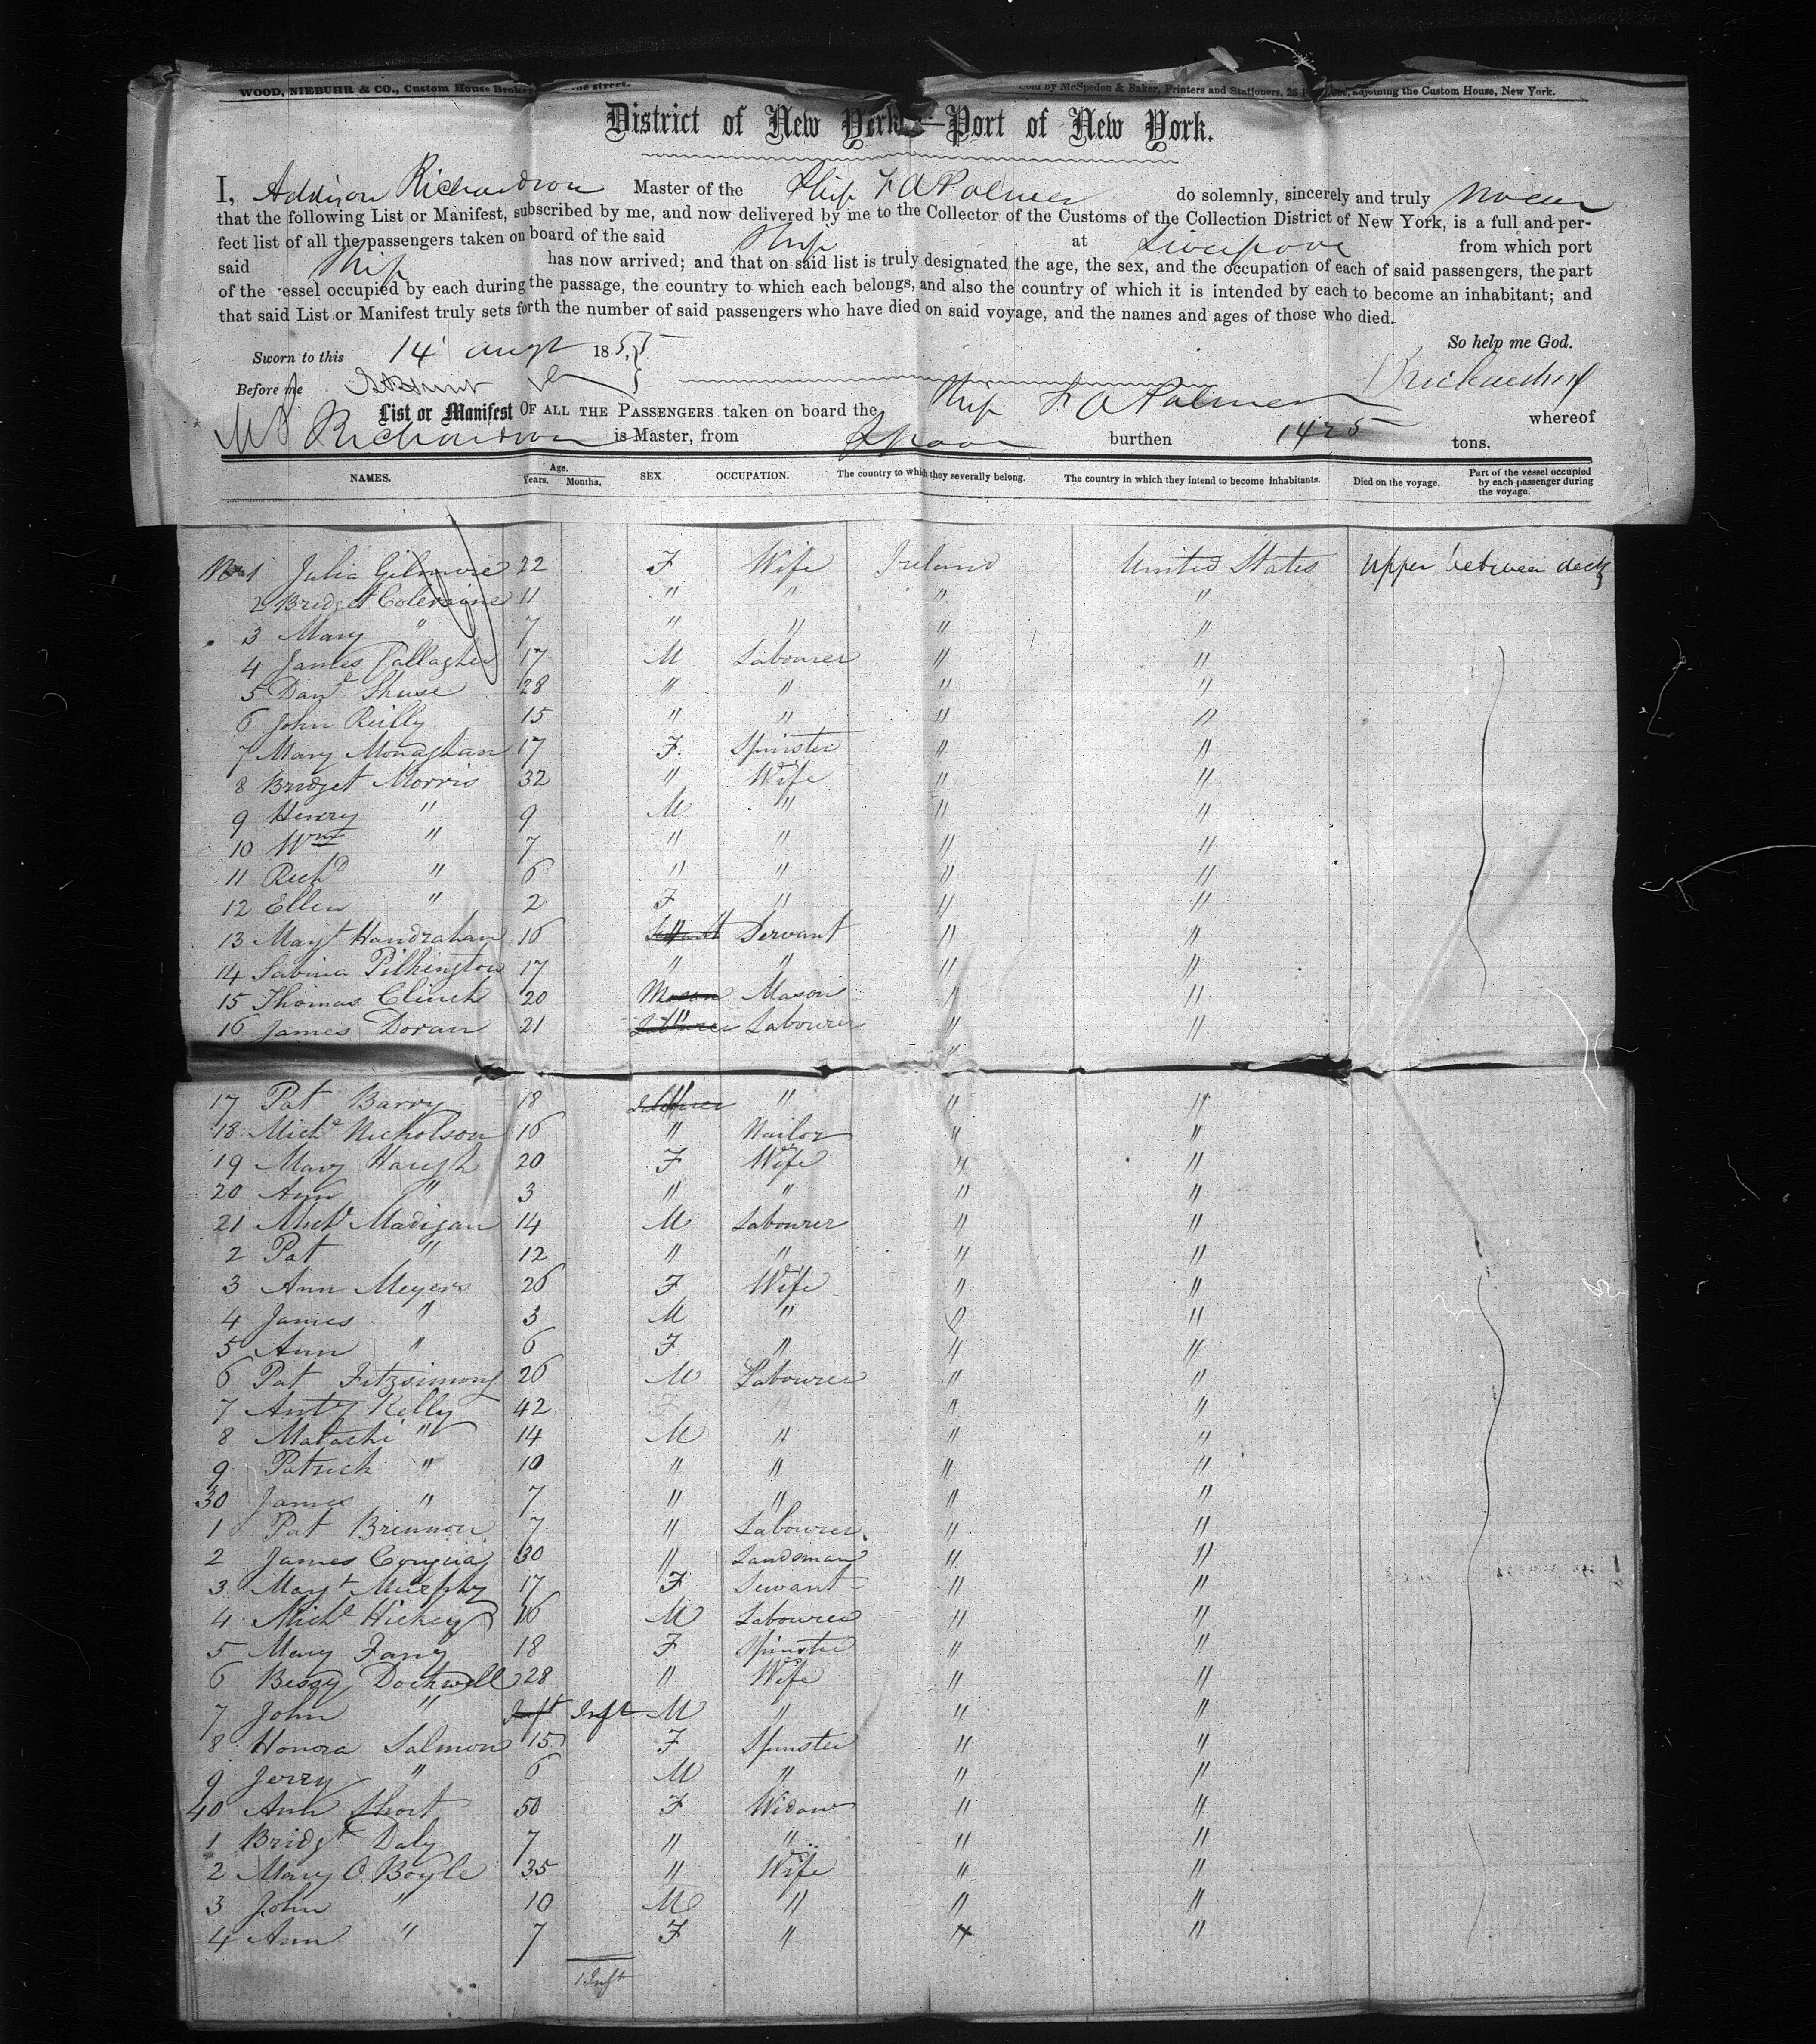 WOOD, NIEBUHR & CO., Custom House Broker street. Sold by McSpedon & Baker, Printers and Stationers, 25 adjoining the Custom House, New York.
District of New York—Port of New York.
I, Addison Richardson Master of the Ship F A Palmer do solemnly, sincerely and truly swear
that the following List or Manifest, subscribed by me, and now delivered by me to the Collector of the Customs of the Collection District of New York, is a full and per-
fect list of all the passengers taken on board of the said Ship at Liverpool from which port
said Ship has now arrived; and that on said list is truly designated the age, the sex, and the occupation of each of said passengers, the part
of the vessel occupied by each during the passage, the country to which each belongs, and also the country of which it is intended by each to become an inhabitant; and
that said List or Manifest truly sets forth the number of said passengers who have died on said voyage, and the names and ages of those who died.
So help me God.
Sworn to this 14 augt 1855
Before me
A Richardson
List or Manifest OF ALL THE PASSENGERS taken on board the Ship F A Palmer whereof
Richardson is Master, from Lpool burthen 1425 tons.
NAMES. Age. Years. Months. SEX. OCCUPATION. The country to which they severally belong. The country in which they intend to become inhabitants. Died on the voyage. Part of the vessel occupied by each passenger during the voyage.
No 1 Julia Gilmore 22 F Wife Ireland United States Upper between deck
2 Bridget Coleraine 11 " " " "
3 Mary " 7 " " " "
4 James Gallagher 17 M Labourer " "
5 Danl 28 " " " "
6 John Reilly 15 " " " "
7 Mary Monaghan 17 F. Spinster " "
8 Bridget Morris 32 " Wife " "
9 Henry " 9 M " " "
10 Wm " 7 " " " "
11 Richd " 6 " " " "
12 Ellen " 2 F " " "
13 Mayt Handrahan 16 " Servant " "
14 Sabina Pilkington 17 " " " "
15 Thomas Clinch 20 Mason Mason " "
16 James Doran 21 " Labourer " "
17 Pat Barry 18 " " " "
18 Michl Nicholson 16 " Nailor " "
19 Mary Haugh 20 F Wife " "
20 Ann " 3 " " " "
21 Michl Madigan 14 M Labourer " "
2 Pat " 12 " " " "
3 Ann Meyers 26 F Wife " "
4 James " 3 M " " "
5 Ann " 6 F " " "
6 Pat Fitzsimons 26 M Labourer " "
7 Anty Kelly 42 F " " "
8 Malachi " 14 M " " "
9 Patrick " 10 " " " "
30 James " 7 " " " "
1 Pat Brennon 7 " Labourer " "
2 James 30 " Landsman " "
3 Mayt Murphy 17 F Servant " "
4 Michl Hickey 16 M Labourer " "
5 Mary 18 F Spinster " "
6 Bessy Dockwell 28 " Wife " "
7 John " Inft Inft M " " "
8 Honora Salmon 15 F Spinster " "
9 Jerry " 6 M " " "
40 Ann Short 50 F Widow " "
1 Bridgt Daly 7 " " " "
2 Mary O Boyle 35 " Wife " "
3 John " 10 M " " "
4 Ann " 7 F " " "
1 Inft